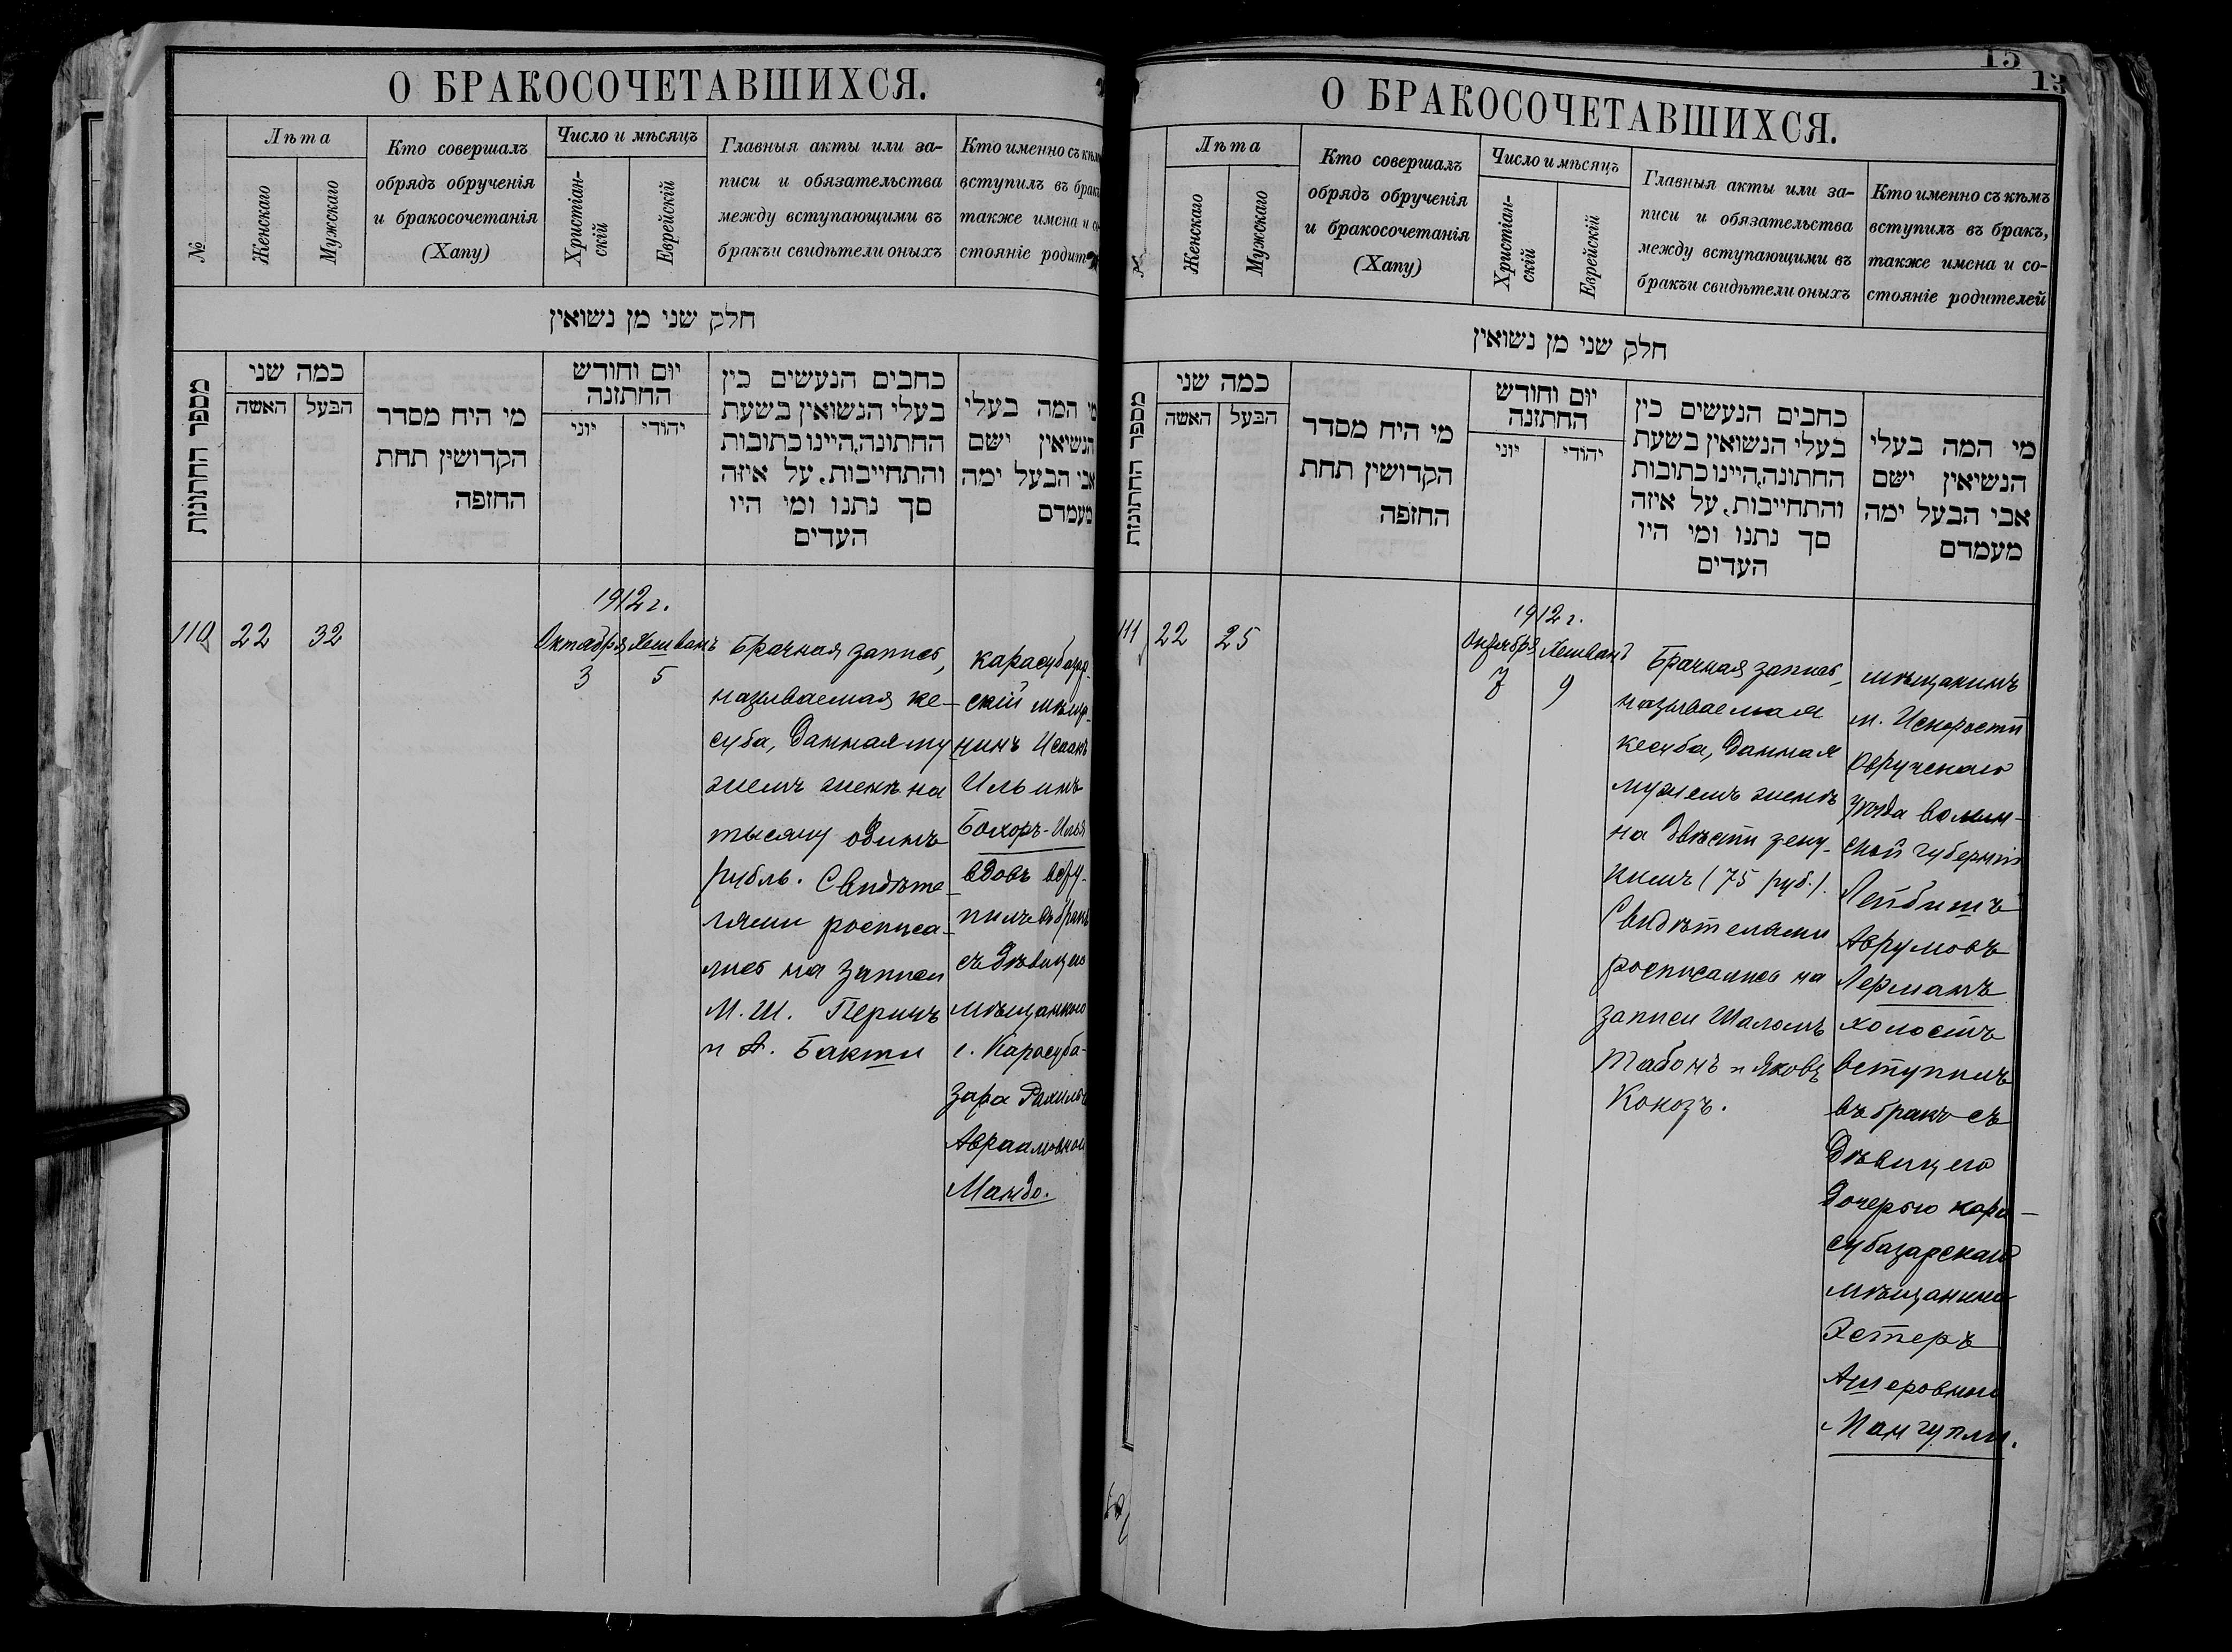 О БРАКОСОЧЕТАВШИХСЯ.
№
Лѣта
Женскаго
Мужскаго
Кто совершалъ
обрядъ обрученія
и бракосочетанія
(Хапу)
Число и мѣсяцъ
Христіан-
скій
Еврейскій
Главныя акты или за-
писи и обязательства
между вступающими въ
бракъи свидѣтели оныхъ
Кто именно съ кѣм
вступилъ въ брак
также имена и со
стояніе родит
חלק שני מן נשואין
מספר החתונות
כמה שני
האשה
הבעל
מי היח מסדר
הקדושין תחת
החופה
יום וחודש
החתונה
יוני
יהודי
כחבים הנעשים כין
בעלי הנשואין בשעת
החתונה,היינו כתובות
והתחייבות. על איזה
סך נתנו ומי היו
העדים
מי המה בעלי
הנשיאין ישם
אבי הבעל ימה
מעמדם
110
22
32
1912 г.
Октября
3
Хешванъ
5
Брачная запись,
называемая ке-
суба, данная му
жемъ женѣ на
тысячу одинъ
рубль. Свидѣте
лями росписа-
лись на записи
М. Ш. Перичъ
и А. Бакши
карасубазар-
скій мѣща-
нинъ Исаакъ
Ильинъ
Бохоръ-Илья
вдовъ всту-
пилъ въ бракъ
съ дѣвицею
мѣщанкою
г. Карасуба-
зара Рахилью
Авраамовной
Мандо.
15
13
О БРАКОСОЧЕТАВШИХСЯ.
Лѣта
Женскаго
Мужскаго
Кто совершалъ
обрядъ обрученія
и бракосочетанія
(Хапу)
Число и мѣсяцъ
Христіан-
скій
Еврейскій
Главныя акты или за-
писи и обязательства
между вступающими въ
бракъи свидѣтели оныхъ
Кто именно съ кѣмъ
вступилъ въ бракъ,
также имена и со-
стояніе родителей
חלק שני מן נשואין
מספר החתונות
כמה שני
האשה
הבעל
מי היח מסדר
הקדושין תחת
החופה
יום וחודש
החתונה
יוני
יהודי
כחבים הנעשים כין
בעלי הנשואין בשעת
החתונה,היינו כתובות
והתחייבות. על איזה
סך נתנו ומי היו
העדים
מי המה בעלי
הנשיאין ישם
אבי הבעל ימה
מעמדם
111
22
25
1912 г.
Октября
7
Хешванъ
9
Брачная запись,
называемая
кесуба, данная
мужемъ женѣ
на двѣсти зеку-
кимъ (75 руб.).
Свидѣтелями
росписались на
записи Шаломъ
Табонъ и Яковъ
Кокозъ.
мѣщанинъ
м. Искорости
Овручскаго
уѣзда волын-
ской губерніи
Лейбишъ
Аврумовъ
Лерманъ
холостъ
вступилъ
въ бракъ съ
дѣвицею
дочерью кара-
субазарскаго
мѣщанина
Эстеръ
Ашеровной
Мангупли.